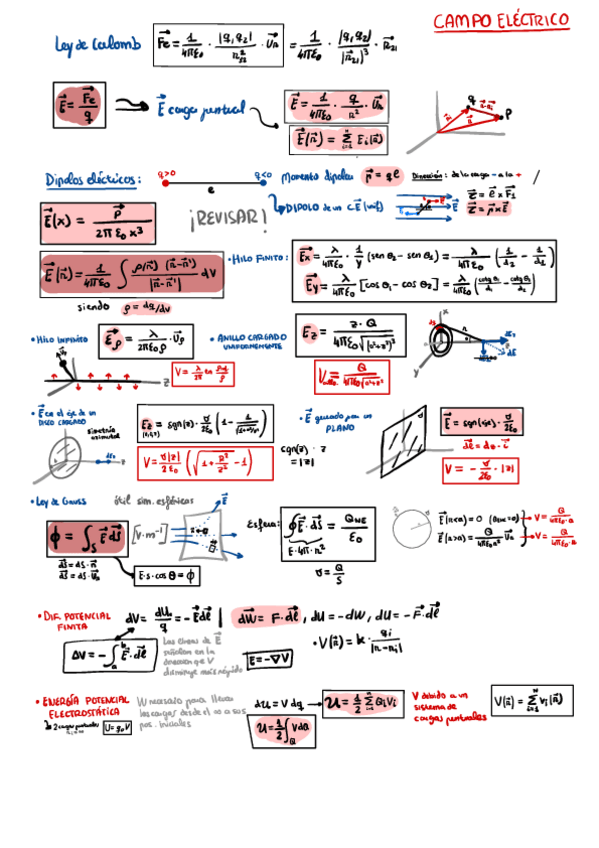 CAMPO ELÉCTRICO
Ley de Coulomb F⃗e = 1/4πε₀ · |q₁q₂|/r²₁₂ · u⃗r = 1/4πε₀ · |q₁q₂|/|r⃗₂₁|³ · r⃗₂₁
E⃗ = F⃗e/q → E⃗ carga puntual
E⃗ = 1/4πε₀ · q/r² · u⃗r
E⃗(r⃗) = Σ Ei(r⃗)
q P
Dipolos eléctricos: q>0 q<0 e
Momento dipolar p⃗ = qe⃗ Dirección: de la carga - a la +
¡REVISAR!
DIPOLO de un CE⃗ (unif) E⃗
τ⃗ = e⃗ × F⃗₁
τ⃗ = p⃗ × E⃗
E⃗(x) = p⃗/2πε₀x³
E⃗(r⃗) = 1/4πε₀ ∫ ρ(r⃗')(r⃗-r⃗')/|r⃗-r⃗'| dV
siendo ρ = dq/dV
• HILO FINITO:
E⃗x = λ/4πε₀ · 1/y (sen θ₂ - sen θ₁) = λ/4πε₀ (1/d₂ - 1/d₁)
E⃗y = λ/4πε₀ [cos θ₁ - cos θ₂] = λ/4πε₀
• HILO INFINITO E⃗ρ = λ/2πε₀ρ · u⃗ρ
• ANILLO CARGADO UNIFORMEMENTE
Ez = z·Q/4πε₀√(a²+z²)³
• E⃗ en el eje de un
DISCO CARGADO
simetría
azimutal
Ez = sgn(z) · σ/2ε₀
V = σ|z|/2ε₀ (√(1 + R²/z²) - 1)
sgn(z) · z
= |z|
• E⃗ generado por un
PLANO
σ
E⃗ = sgn(z) · σ/2ε₀
dℓ⃗ = dz · i⃗
V = - σ/2ε₀ · |z|
• Ley de Gauss útil sim. esféricas
ϕ = ∫s E⃗ dS⃗ [V·m⁻¹]
dS⃗ = dS · n⃗
E·s·cos θ = ϕ
Esfera: ∮E⃗·dS⃗ = QNE/ε₀
E·4π·r²
σ = Q/S
E⃗(r<a) = 0
E⃗(r>a) = Q/4πε₀r² u⃗r
V = Q/4πε₀·a
V = Q/4πε₀·r
• DIF. POTENCIAL
FINITA
dV = dU/q = -E⃗dℓ⃗ | dW = F·dℓ⃗, dU = -dW, dU = -F⃗·dℓ⃗
ΔV = -∫ E⃗·dℓ⃗
Las líneas de E⃗
señalan en la
dirección que V
disminuye más rápido
E = -∇V
• V(r⃗) = k · qi/|r-ri|
• ENERGÍA POTENCIAL
ELECTROSTÁTICA
2 cargas puntuales
U = q₀V
W necesario para llevar
las cargas desde el ∞ a sus
pos. iniciales
dU = V dq → U = 1/2 Σ QiVi
U = 1/2 ∫Q V dQ
V debido a un
sistema de
cargas puntuales
V(r⃗) = Σ Vi(r⃗)